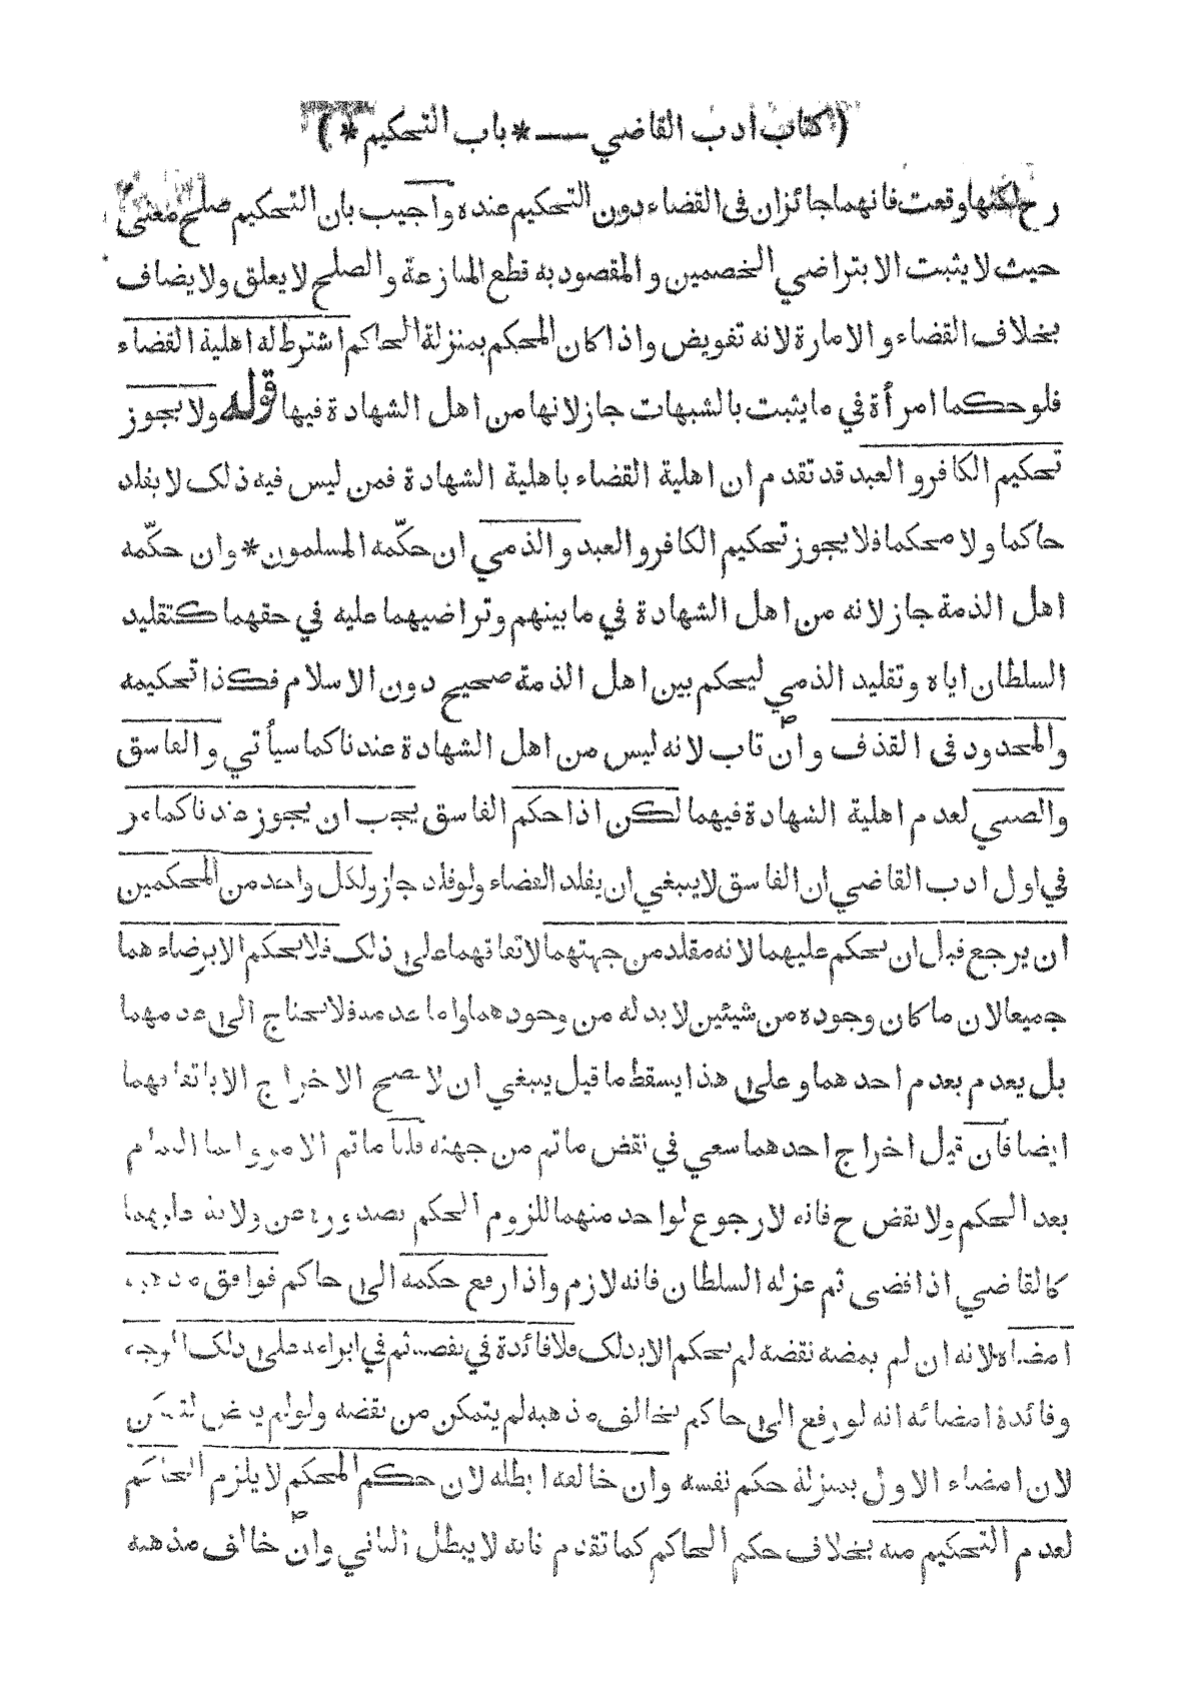 ( كتاب ادب القاضي — * باب التحكيم * )
رح لكنها وقعت فانهما جائزان فى القضاء دون التحكيم عنده واجيب بان التحكيم صلح معنى
حيث لا يثبت الا بتراضي الخصمين و المقصود به قطع المنازعة و الصلح لا يعلق ولا يضاف
بخلاف القضاء و الامارة لانه تفويض واذا كان المحكم بمنزلة الحاكم اشترط له اهلية القضاء
فلو حكما امرأة في ما يثبت بالشبهات جاز لانها من اهل الشهادة فيها قوله ولا يجوز
تحكيم الكافر و العبد قد تقدم ان اهلية القضاء باهلية الشهادة فمن ليس فيه ذلك لا يقلد
حاكما ولا محكما فلا يجوز تحكيم الكافر و العبد و الذمي ان حكّمه المسلمون * وان حكّمه
اهل الذمة جاز لانه من اهل الشهادة في ما بينهم وتراضيهما عليه في حقهما كتقليد
السلطان اياه وتقليد الذمي ليحكم بين اهل الذمة صحيح دون الاسلام فكذا تحكيمه
والمحدود فى القذف وان تاب لانه ليس من اهل الشهادة عندنا كما سيأتي والفاسق
والصبي لعدم اهلية الشهادة فيهما لكن اذا حكم الفاسق يجب ان يجوز عندنا كما مر
في اول ادب القاضي ان الفاسق لا ينبغي ان يقلد القضاء ولو قلد جاز ولكل واحد من المحكمين
ان يرجع قبل ان يحكم عليهما لانه مقلد من جهتهما لاتفاقهما على ذلك فلا يحكم الا برضاءهما
جميعا لان ما كان وجوده من شيئين لا بد له من وجودهما واما عدمه فلا يحتاج الى عدمهما
بل يعدم بعدم احدهما وعلى هذا يسقط ما قيل ينبغي ان لا يصح الاخراج الا باتفاقهما
ايضا فان قيل اخراج احدهما سعي في نقض ماتم من جهته قلنا ماتم الامر وانما التمام
بعد الحكم ولا نقض ح فانه لا رجوع لواحد منهما للزوم الحكم بصدوره عن ولاية عليهما
كالقاضي اذا قضى ثم عزله السلطان فانه لازم واذا رفع حكمه الى حاكم فوافق مذهبه
امضاه لانه ان لم يمضه نقضه لم يحكم الا بذلك فلا فائدة في نقضه ثم في ابراءه على ذلك الوجه
وفائدة امضائه انه لو رفع الى حاكم يخالف مذهبه لم يتمكن من نقضه ولو لم يمض لتمكن
لان امضاء الاول بمنزلة حكم نفسه وان خالفه ابطله لان حكم المحكم لا يلزم الحاكم
لعدم التحكيم منه بخلاف حكم الحاكم كما تقدم فانه لا يبطل الثاني وان خالف مذهبه